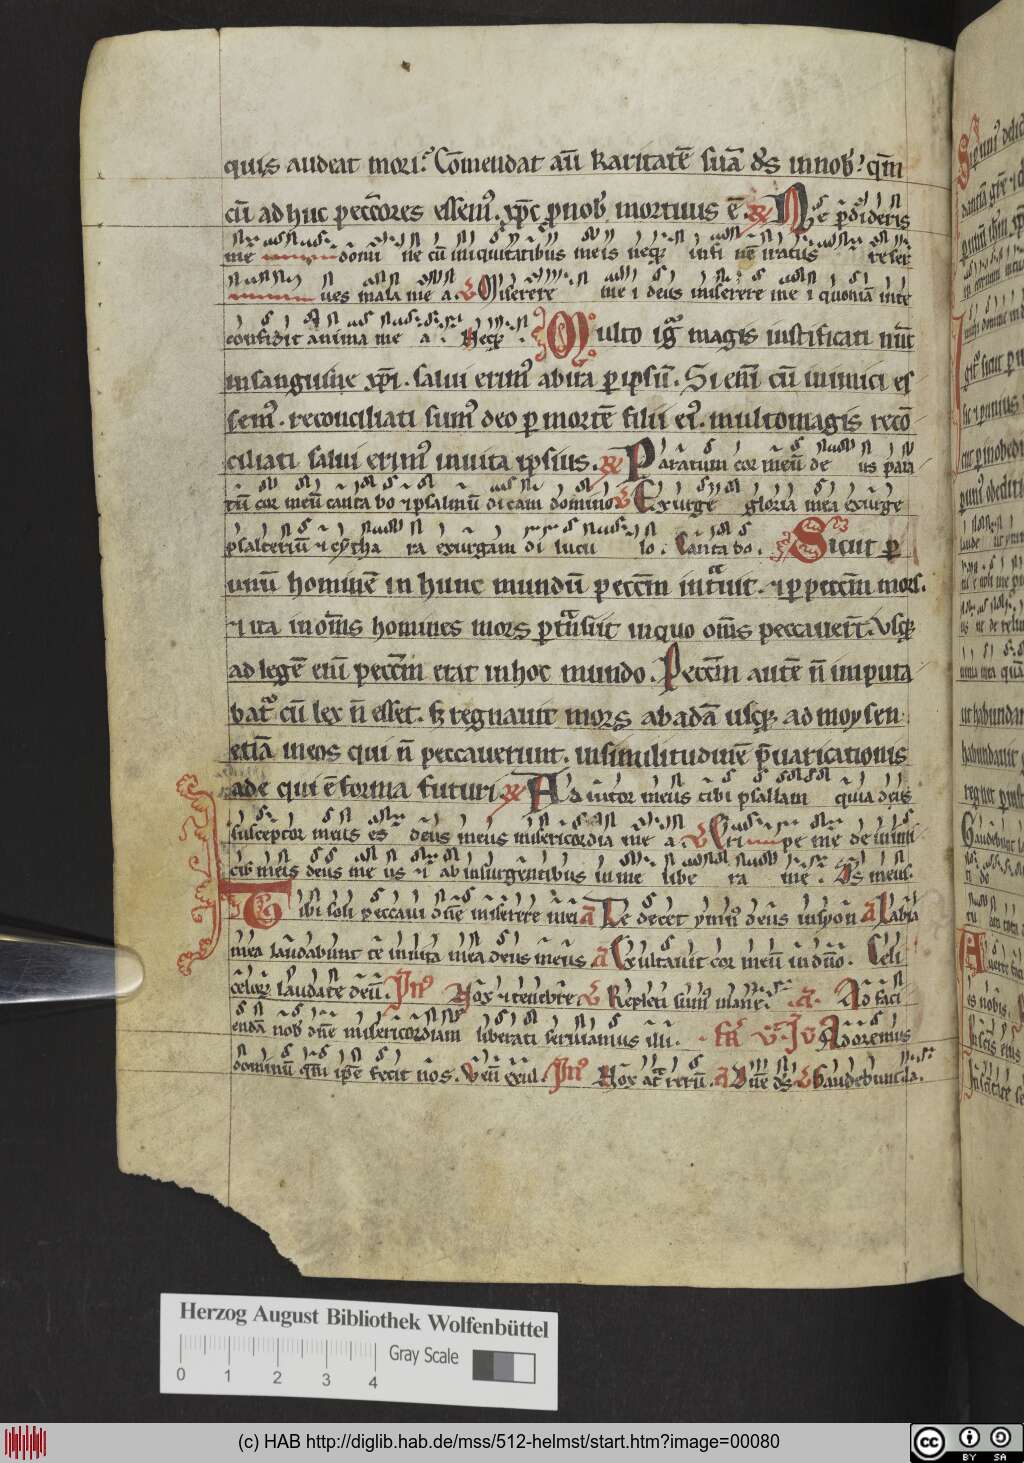 quis audeat mori. Cōmendat aū karitatē suā d̄s in nob̄. qm̄
cū adhuc peccōres essem᷒. xp̄c p nob̄ mortuus ē. R Ne pdideris
me domi ne cū iniquitatibus meis neq; infi nē iratus reser
ues mala me a V Miserere me i deus miserere me i quoniā in te
confidit anima me a. Neq;. Multo ig̊ magis iustificati nūc
in sanguine xp̄i. salui erim᷒ ab ira p ipsū. Si enī cū inimici es
sem᷒. reconciliati sum᷒ deo p mortē filii ei᷒. multo magis recō
ciliati salui erim᷒ in uita ipsius. R Paratum cor meū de us para
tū cor meū canta bo ⁊ psalmū dicam domino V Exurge gloria mea exurge
psalteriū ⁊ cytha ra exurgam di lucu lo. Canta bo. Sicut p
unū hominē in hunc mundū peccm̄ intuit. ⁊ p peccm̄ mors.
⁊ ita in om̄s homines mors p tn̄siit in quo om̄s peccauert̄. Vsq;
ad legē enī peccm̄ erat in hoc mundo. Peccm̄ autē n̄ imputa
bat᷒ cū lex n̄ esset. s; regnauit mors ab adā usq; ad moysen
etiā in eos qui n̄ peccauerunt. in similitudinē p̄uaricationis
ade qui ē forma futuri. R Adiutor meus tibi psallam quia deus
susceptor meus es deus meus misericordia me a V Eri pe me de inimi
cis meis deus me us ⁊ ab insurgentibus in me libe ra me. Ds meus.
Tibi soli peccaui dn̄e miserere mei A Te decet ymn᷒ deus in syon A Labia
mea laudabunt te in uita mea deus meus A Exultauit cor meū in dn̄o. Celi
celor; laudate deū. Jn᷒ Nox ⁊ tenebre V Repleti sum᷒ mane. A. Ad faci
endā nob̄ dn̄e misericordiam liberati seruiamus illi. fr̄ V. JV Adoremus
dominū qm̄ ipse fecit nos. V Ven̄ exul. Jn᷒ Nox at᷒ rerū. A Dn̄e d̄s V Gaudebunt la.
Herzog August Bibliothek Wolfenbüttel
Gray Scale
0 1 2 3 4
(c) HAB http://diglib.hab.de/mss/512-helmst/start.htm?image=00080
cc BY SA